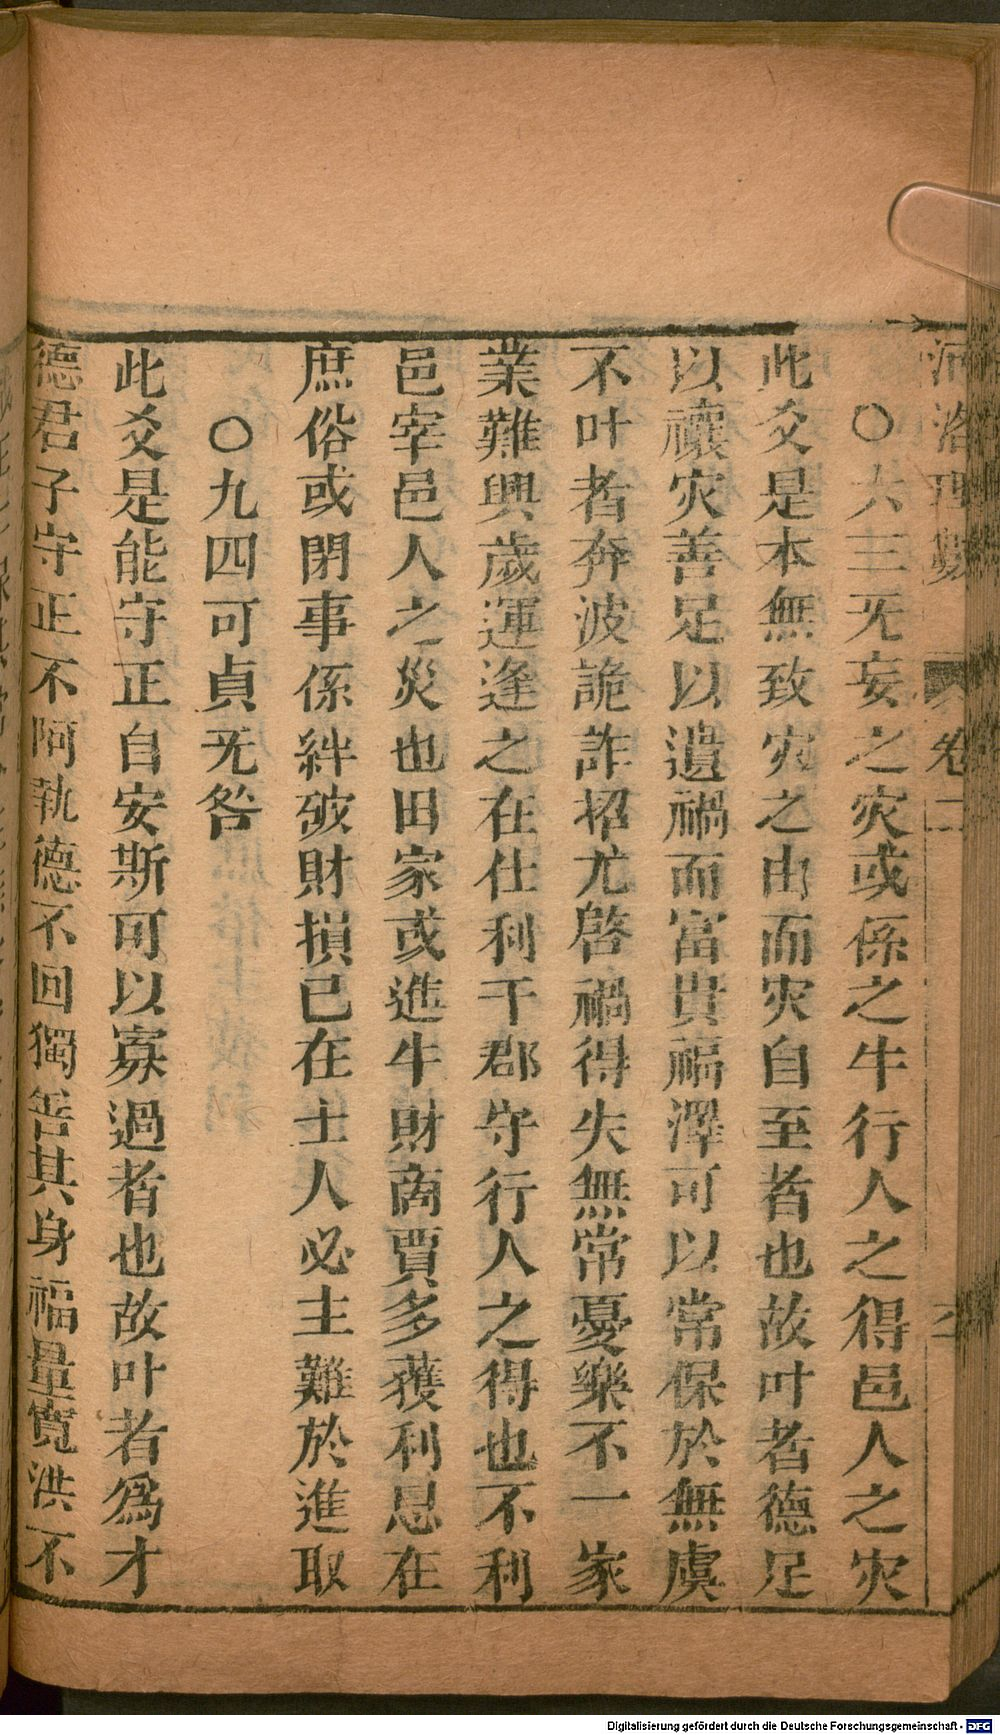 河洛理數 卷二
○六三无妄之灾或係之牛行人之得邑人之灾
此爻是本無致灾之由而灾自至者也故叶者德足
以禳灾善足以遺禍而富貴福澤可以常保於無虞
不叶者奔波詭詐招尤啓禍得失無常憂樂不一家
業難興歲運逢之在仕利干郡守行人之得也不利
邑宰邑人之災也田家或進牛財商賈多獲利息在
庶俗或閉事係絆破財損已在士人必主難於進取
○九四可貞无咎
此爻是能守正自安斯可以寡過者也故叶者爲才
德君子守正不阿執德不回獨善其身福量寬洪不
Digitalisierung gefördert durch die Deutsche Forschungsgemeinschaft - DFG